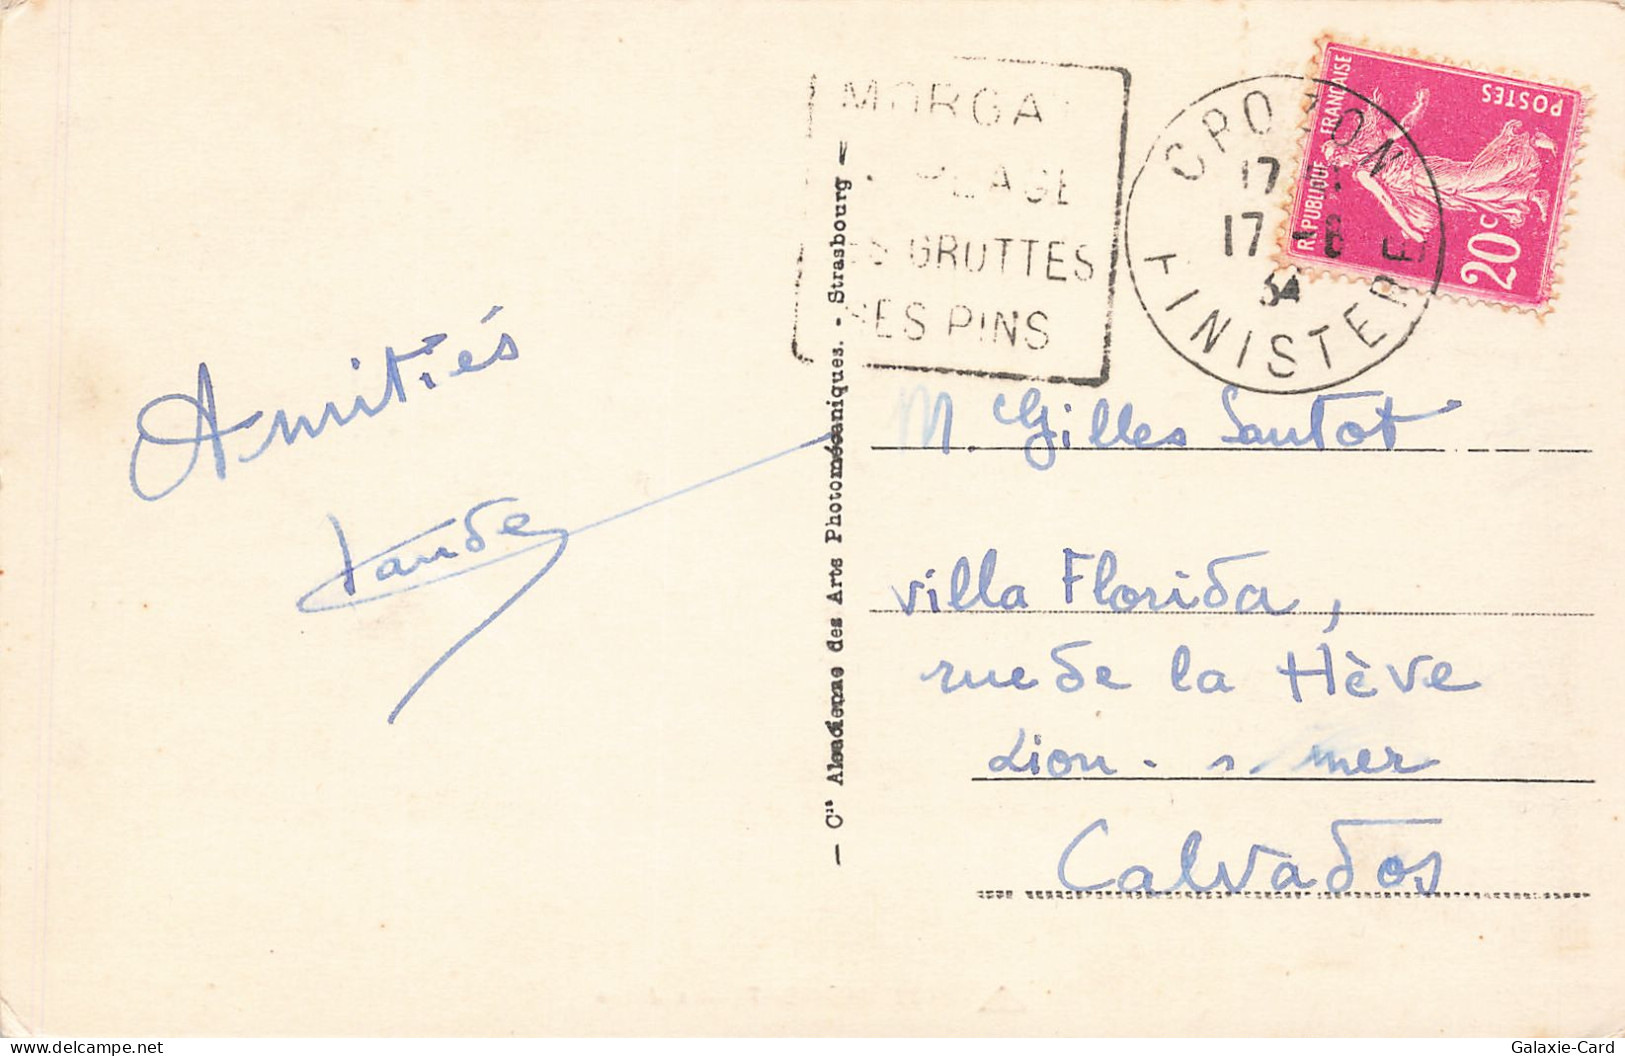 MORGA
PLAGE
GROTTES
SES PINS
CROZON
17
17 -8
34
FINISTERE
REPUBLIQUE FRANÇAISE
POSTES
20c
Amitiés
— Cie Alsacienne des Arts Photomécaniques. - Strasbourg —
M. Gilles Sautot
villa Florida,
rue de la Hève
Lion - s/ mer
Calvados
Galaxie-Card